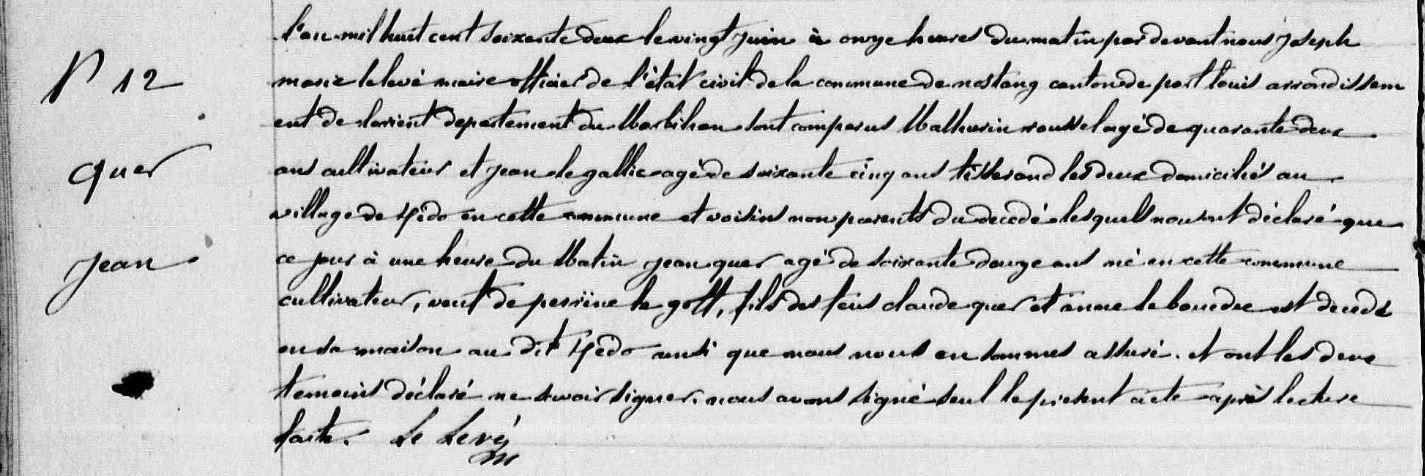 l'an mil huit cent soixante deux le vingt juin à onze heures du matin par devant nous joseph
N° 12
marie le levé maire officier de l'état civil de la commune de nostang canton de port louis arrondissem
ent de lorient departement du Morbihan sont comparus Mathurin roussel agé de quarante deux
quer
ans cultivateur et jean le gallic agé de soixante cinq ans tisserand les deux domiciliés au
village de en cette commune et voisins non parents du decedé lesquels nous ont déclaré que
jean
ce jour à une heure du Matin jean quer agé de soixante douze ans né en cette commune
cultivateur, veuf de perrine le goff, fils des feus claude quer et anne le bouedec est decedé
en sa maison au dit ainsi que nous nous en sommes assuré. et ont les deux
temoins déclaré ne savoir signer. nous avons signé seul le present acte après lecture
faite. Le Levé